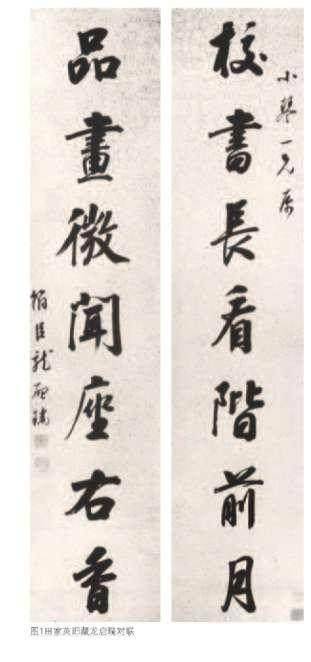 小琴一兄属
校書長看階前月
品畫微聞座右香
翰臣龍啟瑞
图1田家英旧藏龙启瑞对联